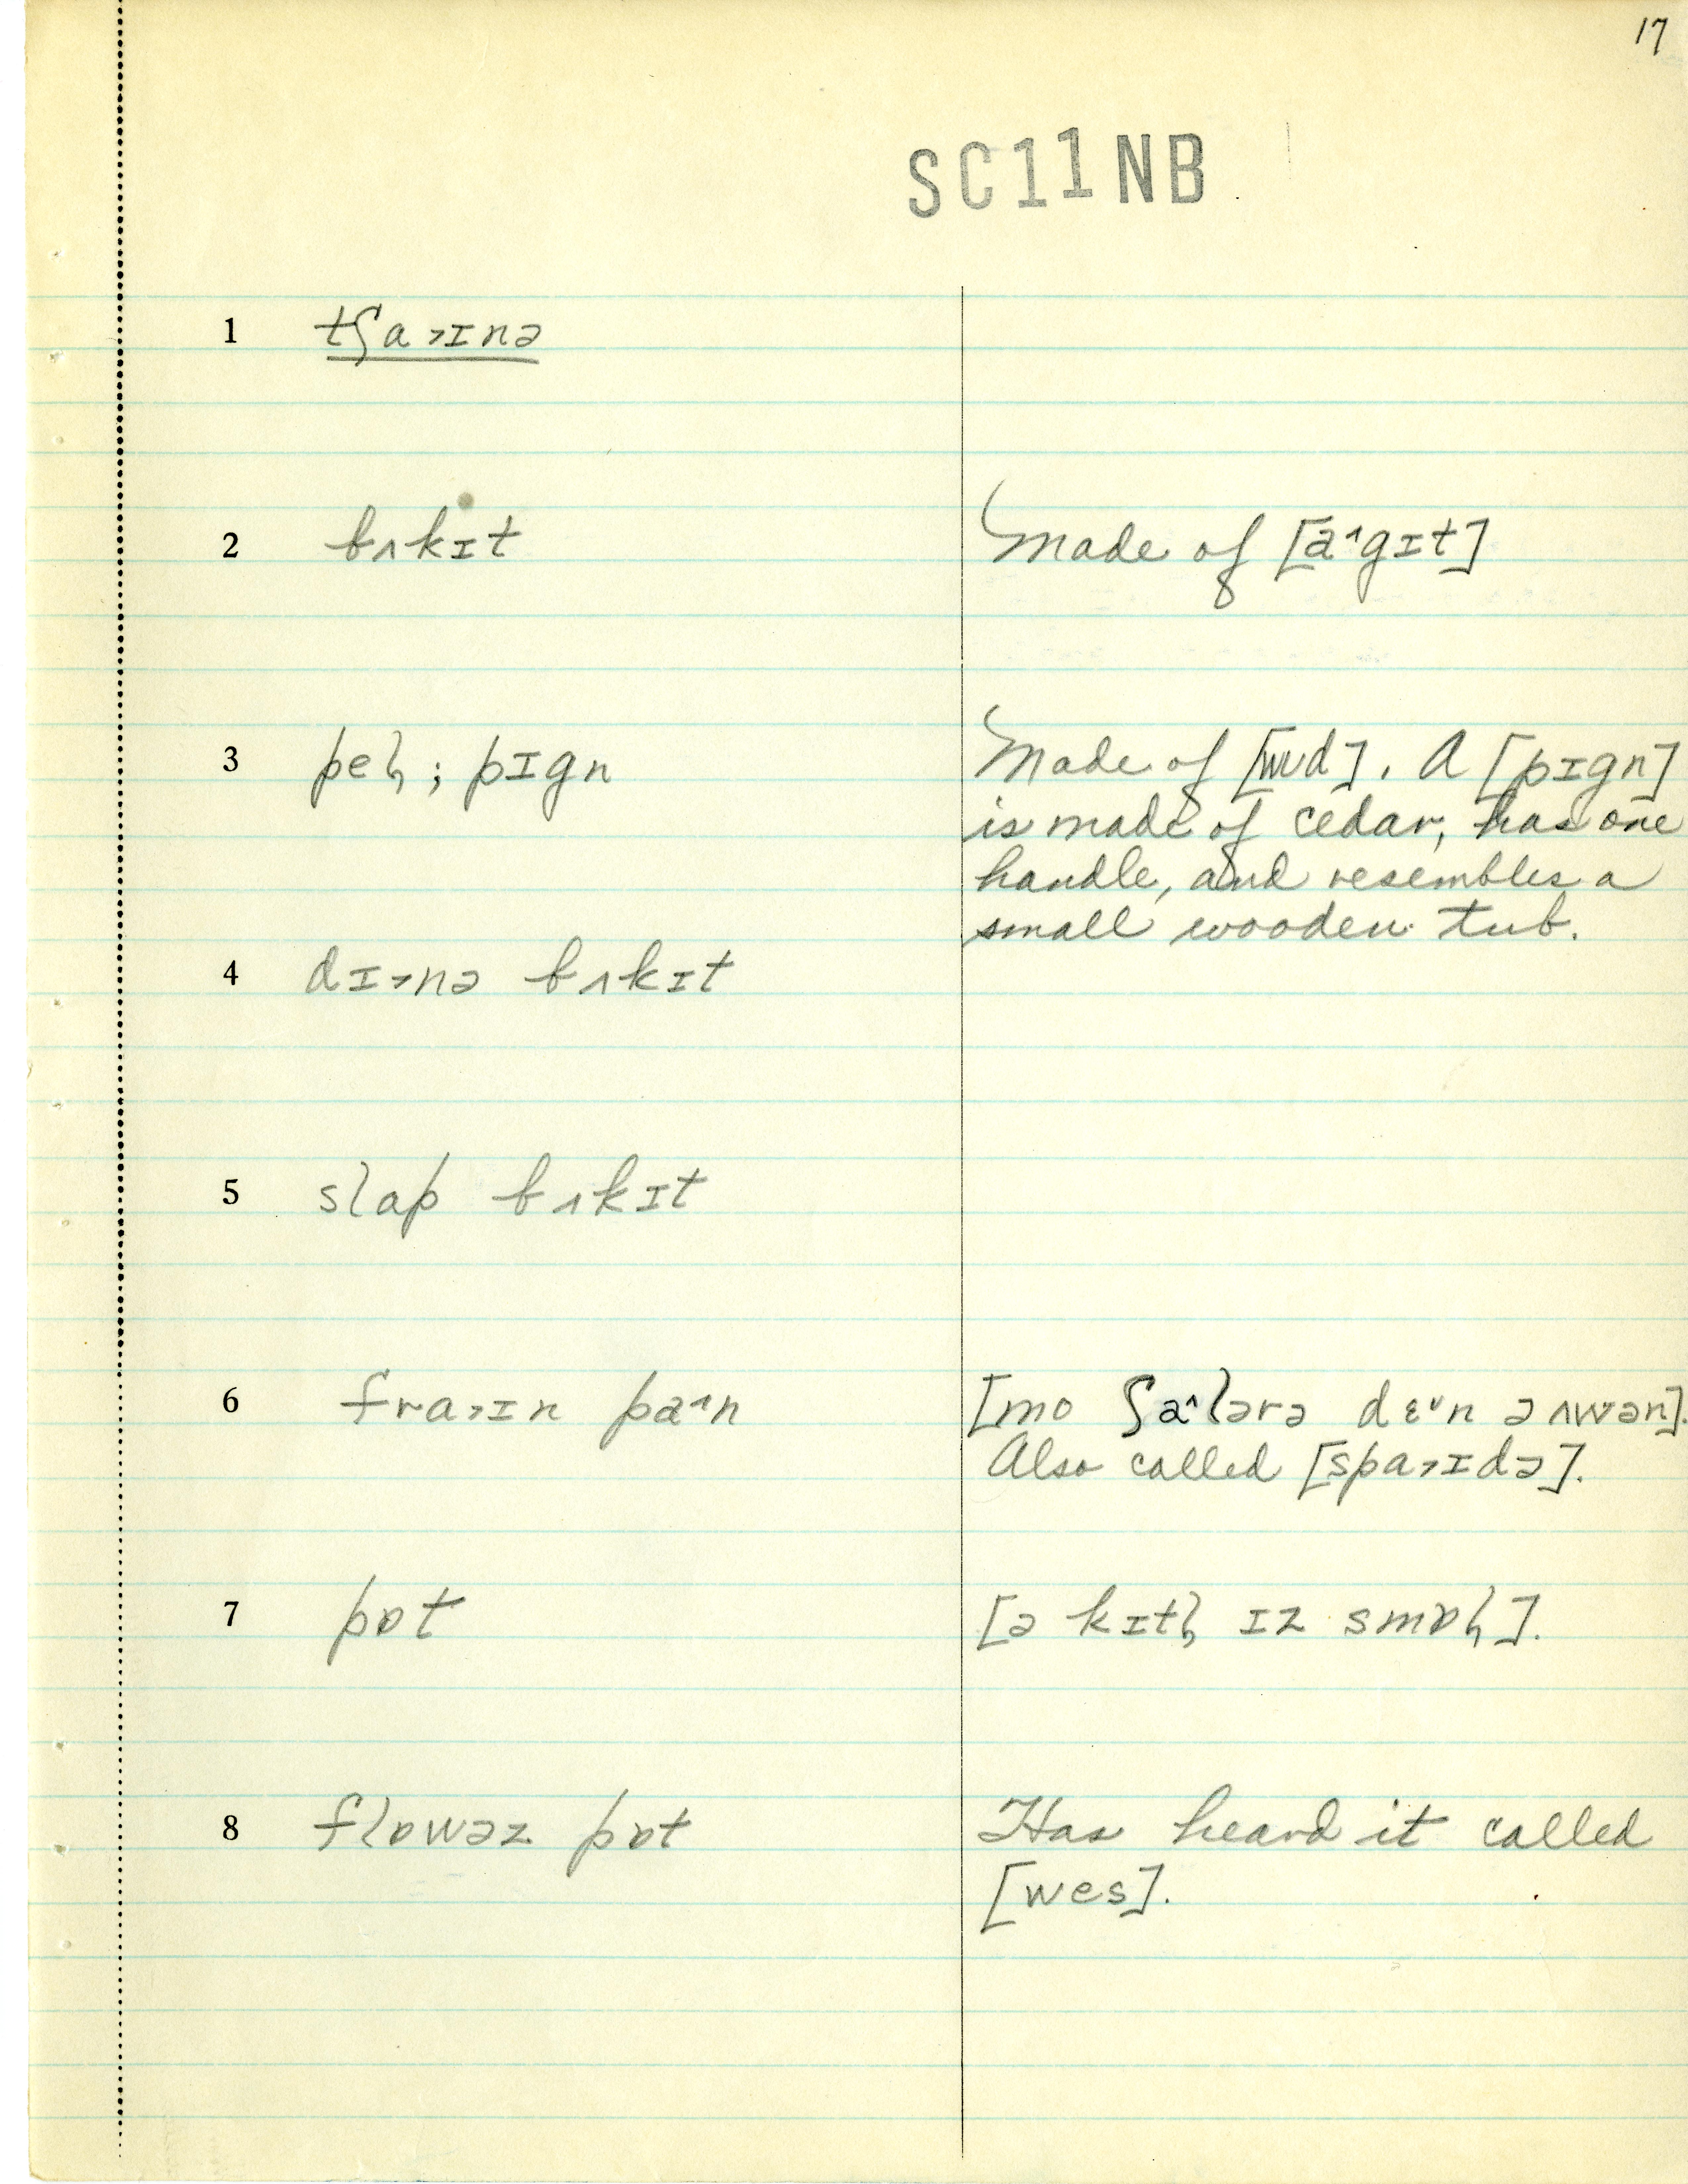 17
SC11NB
1 tʃa˃ɪnə
2 bʌkɪt Made of [a^gɪt]
3 peɫ; pɪgn Made of [wʊd]. A [pɪgn]
is made of cedar, has one
handle, and resembles a
small wooden tub.
4 dɪ˃nə bʌkɪt
5 slap bʌkɪt
6 fra˃ɪn pa^n [mo ʃa^lərə dɛᵛn ə ʌwən].
Also called [spa˃ɪdə].
7 pɒt [ə kɪtɫ ɪz smɒɫ].
8 flɒwəz pɒt Has heard it called
[wes].